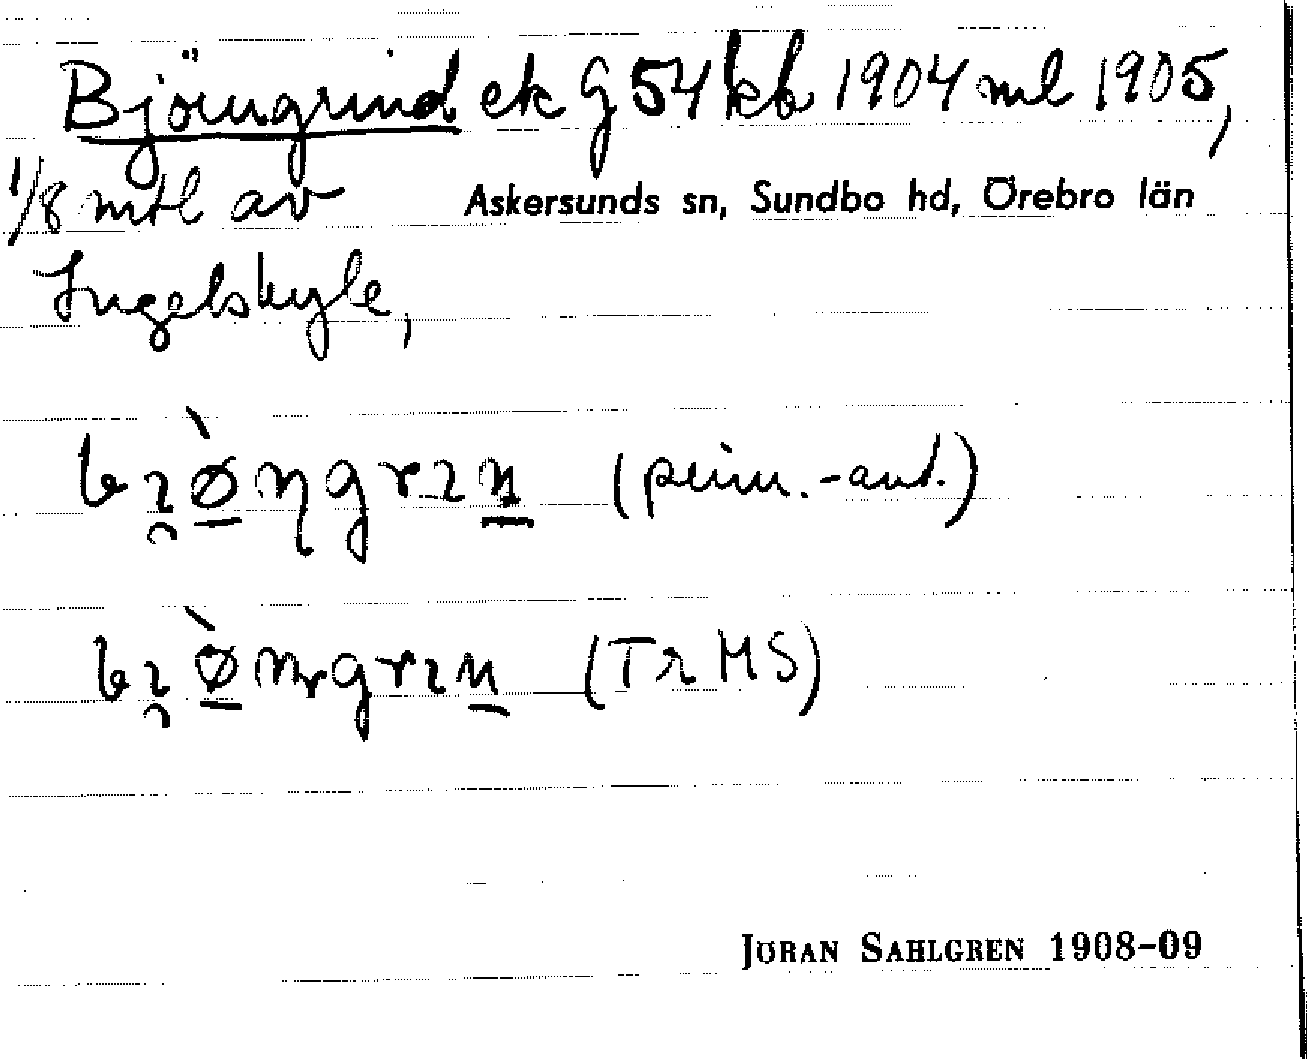 Björngrind ek G 54 kb 1904 ml 1905,
1/8 mtl av Askersunds sn, Sundbo hd, Örebro län
Ingelskyle,
(prim.-ant.)
(Tr MS)
JÖRAN SAHLGREN 1908-09